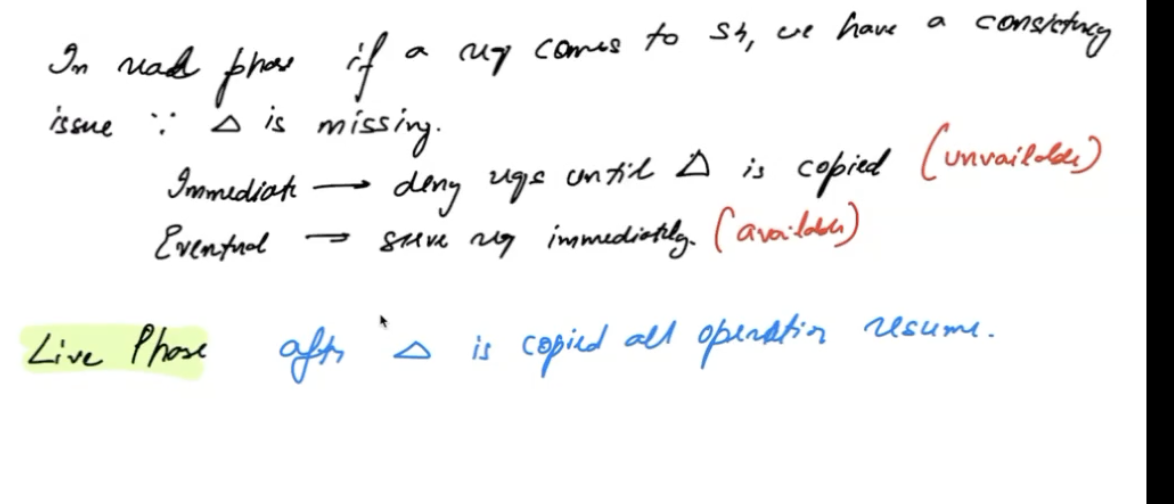 In read phase if a req comes to S4, we have a consistency
issue ∵ Δ is missing.
Immediate → deny reqs until Δ is copied (unvailable)
Eventual → serve req immediately. (available)
Live Phase after Δ is copied all operation resume.